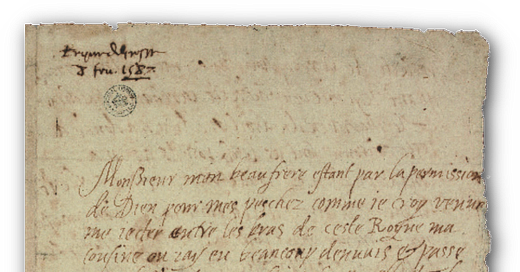 8 feu. 1587
Monsieur mon beaufrere estant par la permission
de Dieu pour mes peschez comme ie croy venue
me ieter entre les bras de ceste Royne ma
cousine ou iay eu beaucoup dennuis & passe